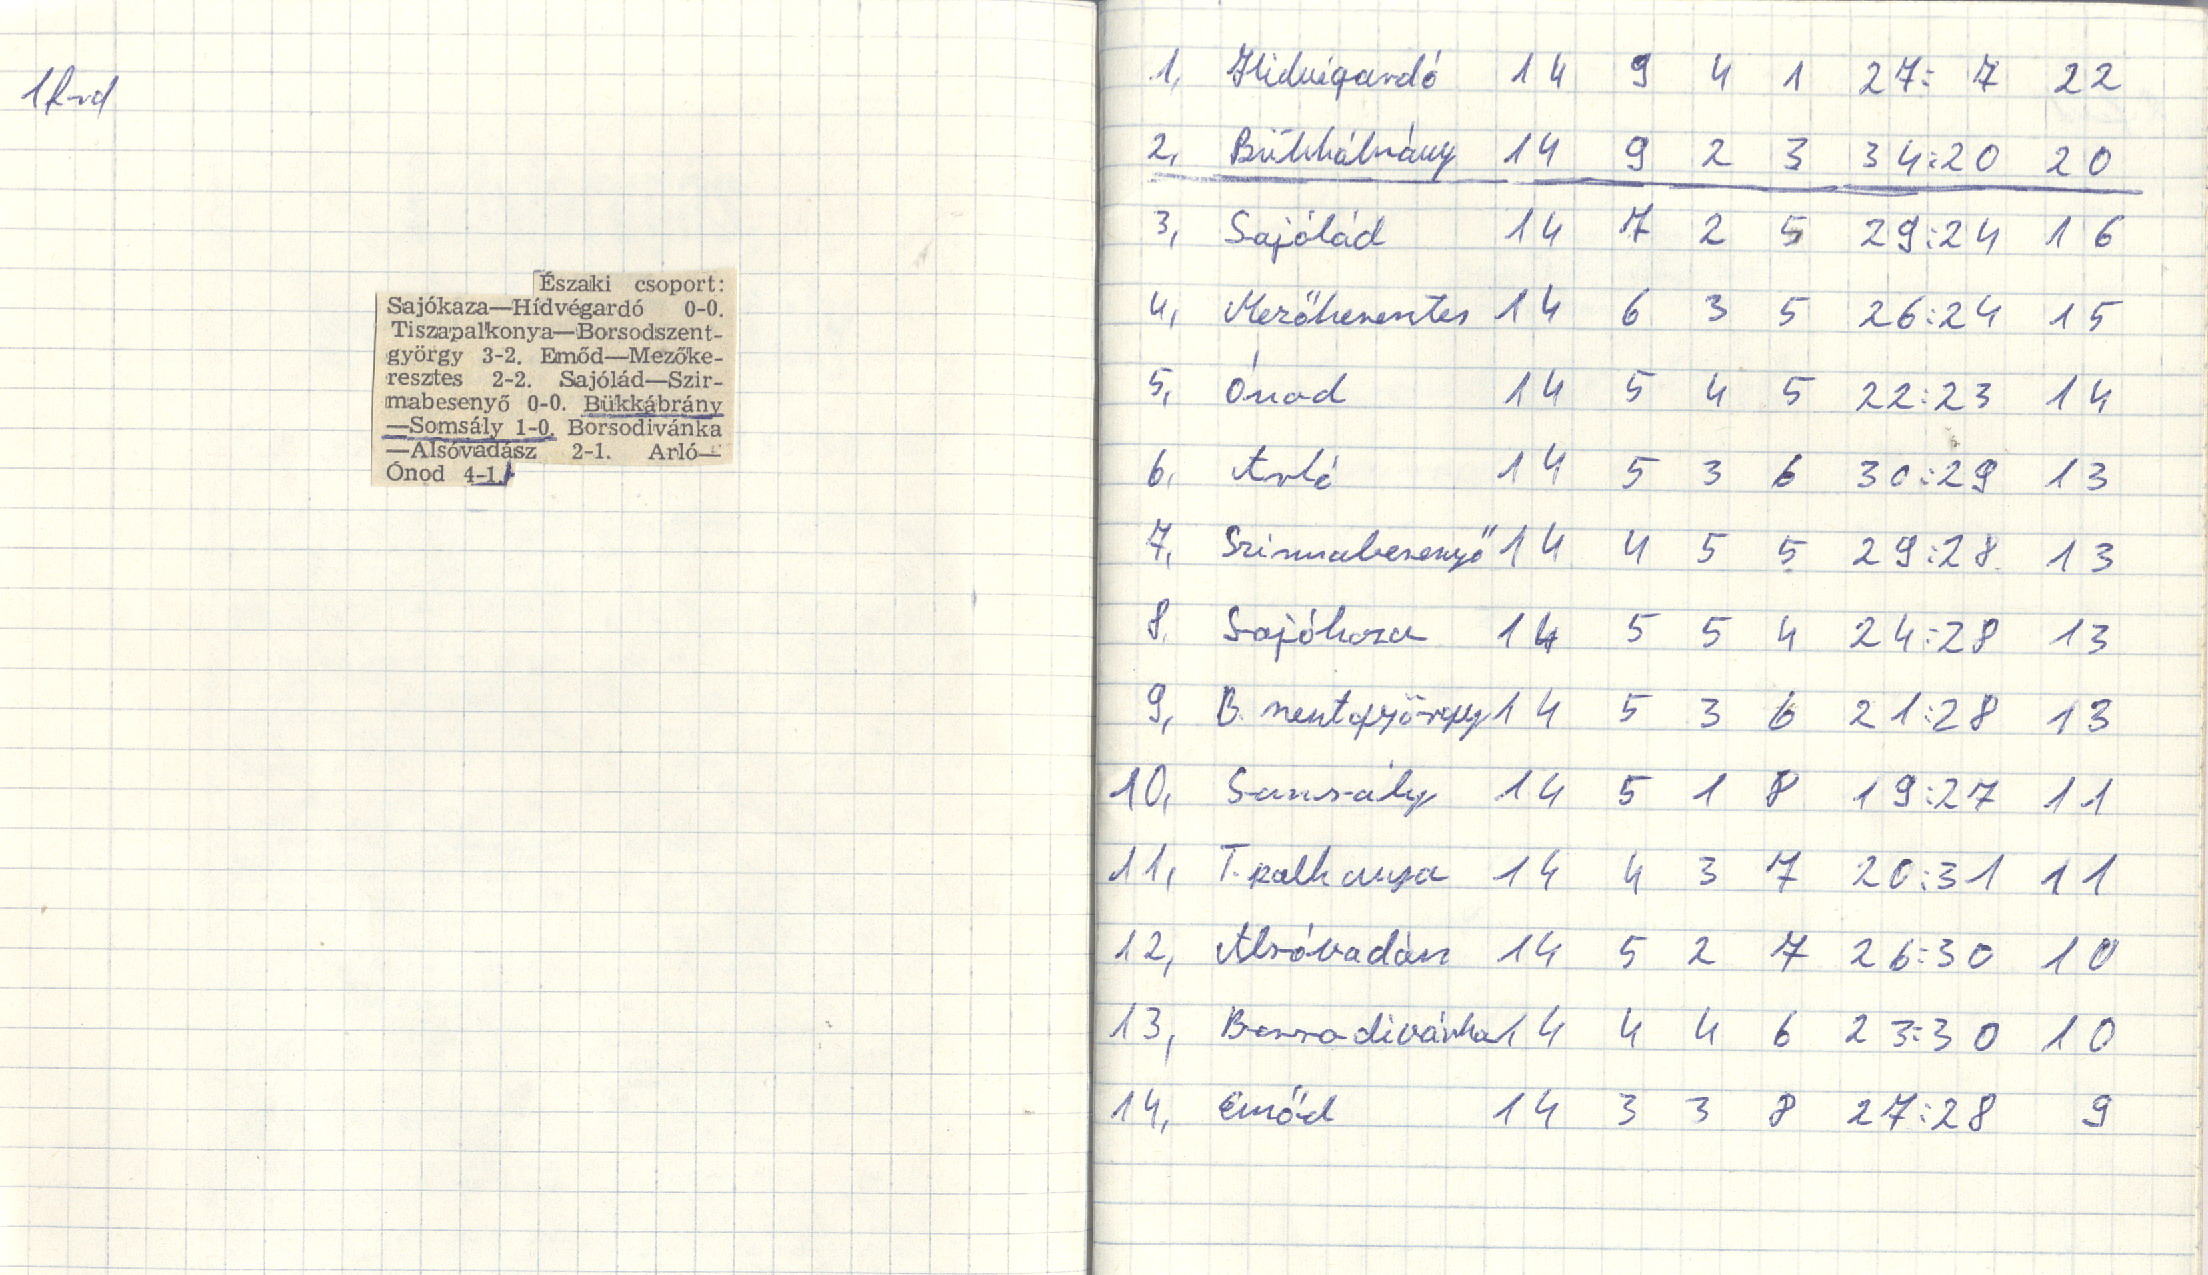 Északi csoport:
Sajókaza—Hídvégardó 0-0.
Tiszapalkonya—Borsodszent-
györgy 3-2. Emőd—Mezőke-
resztes 2-2. Sajólád—Szir-
mabesenyő 0-0. Bükkábrány
—Somsály 1-0. Borsodivánka
—Alsóvadász 2-1. Arló—
Ónod 4-1.
1, Hidvégardó 14 9 4 1 27: 7 22
2, Bükkábrány 14 9 2 3 34:20 20
3, Sajólád 14 7 2 5 29:24 16
4, Mezőkeresztes 14 6 3 5 26:24 15
5, Ónod 14 5 4 5 22:23 14
6, Arló 14 5 3 6 30:29 13
7, Szirmabesenyő 14 4 5 5 29:28 13
8, Sajókaza 14 5 5 4 24:28 13
9, B. szentgyörgy 14 5 3 6 21:28 13
10, Somsály 14 5 1 8 19:27 11
11, T. palkonya 14 4 3 7 20:31 11
12, Alsóvadász 14 5 2 7 26:30 10
13, Borsodivánka 14 4 4 6 23:30 10
14, Emőd 14 3 3 8 27:28 9